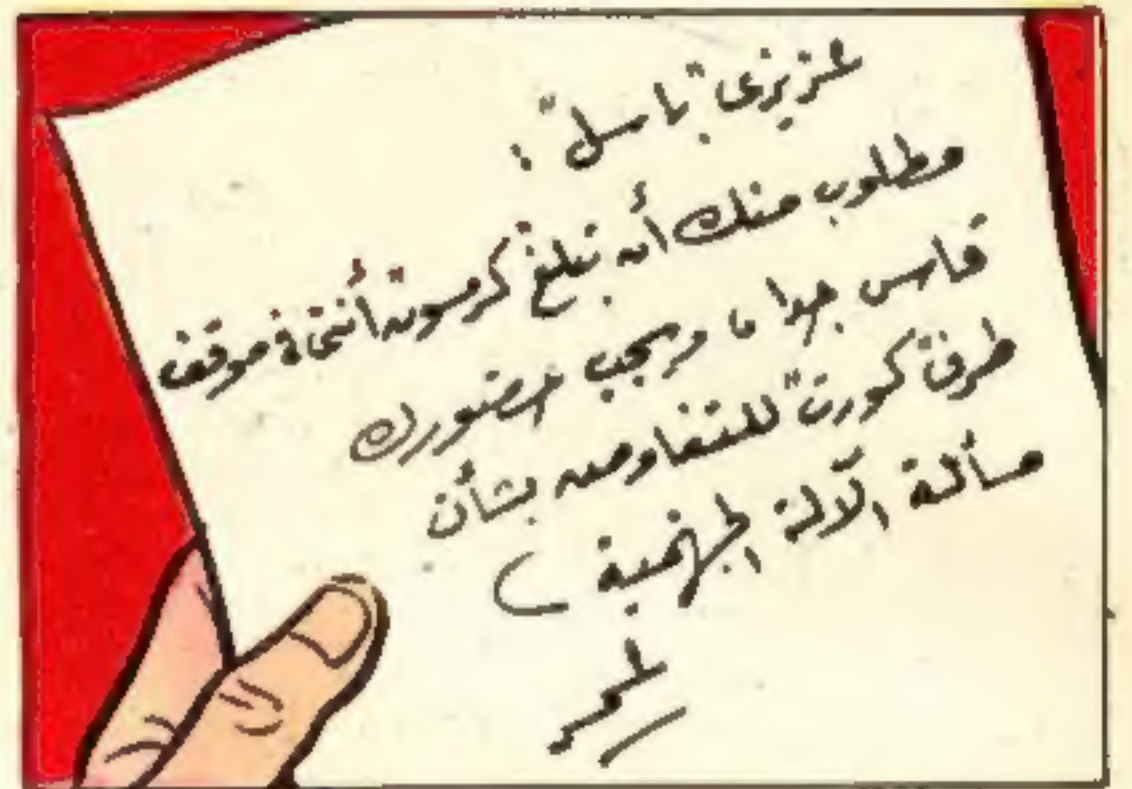 عزيزى "باسل" :
مطلوب منك أن تبلغ كرسون أننى فى موقف
قاس جدا ، ويجب حضورك
طرف "كورت" للتفاوض بشأن
مسألة الآلة الجهنمية